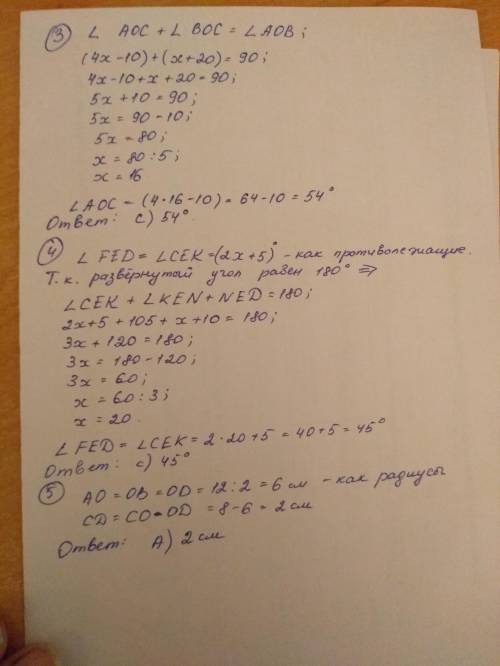 ③ ∠ AOC + ∠ BOC = ∠AOB;
(4x-10)+(x+20)=90;
4x-10+x+20=90;
5x+10=90;
5x=90-10;
5x=80;
x=80:5;
x=16
∠AOC = (4·16-10)=64-10=54°
Ответ: с) 54°.
④ ∠ FED = ∠CEK=(2x+5)° - как противолежащие.
Т.к. развёрнутый угол равен 180° ⇒
∠CEK + ∠KEN + NED=180;
2x+5+105+x+10=180;
3x+120=180;
3x=180-120;
3x=60;
x=60:3;
x=20.
∠ FED = ∠CEK=2·20+5=40+5=45°
Ответ: с) 45°
⑤ AO=OB=OD=12:2=6 см - как радиусы
CD=CO-OD =8-6=2 см
Ответ: А) 2 см